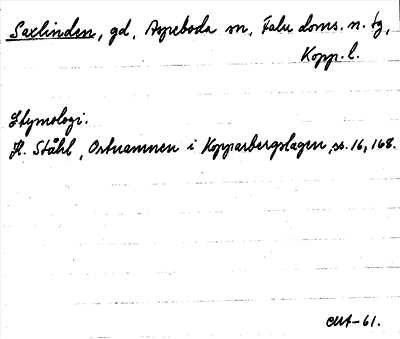 Saxlinden, gd, Aspeboda sn, Falu doms. n. tg,
Kopp. l.
Etymologi.
H. Ståhl, Ortnamnen i Kopparbergslagen, ss. 16, 168.
-61.